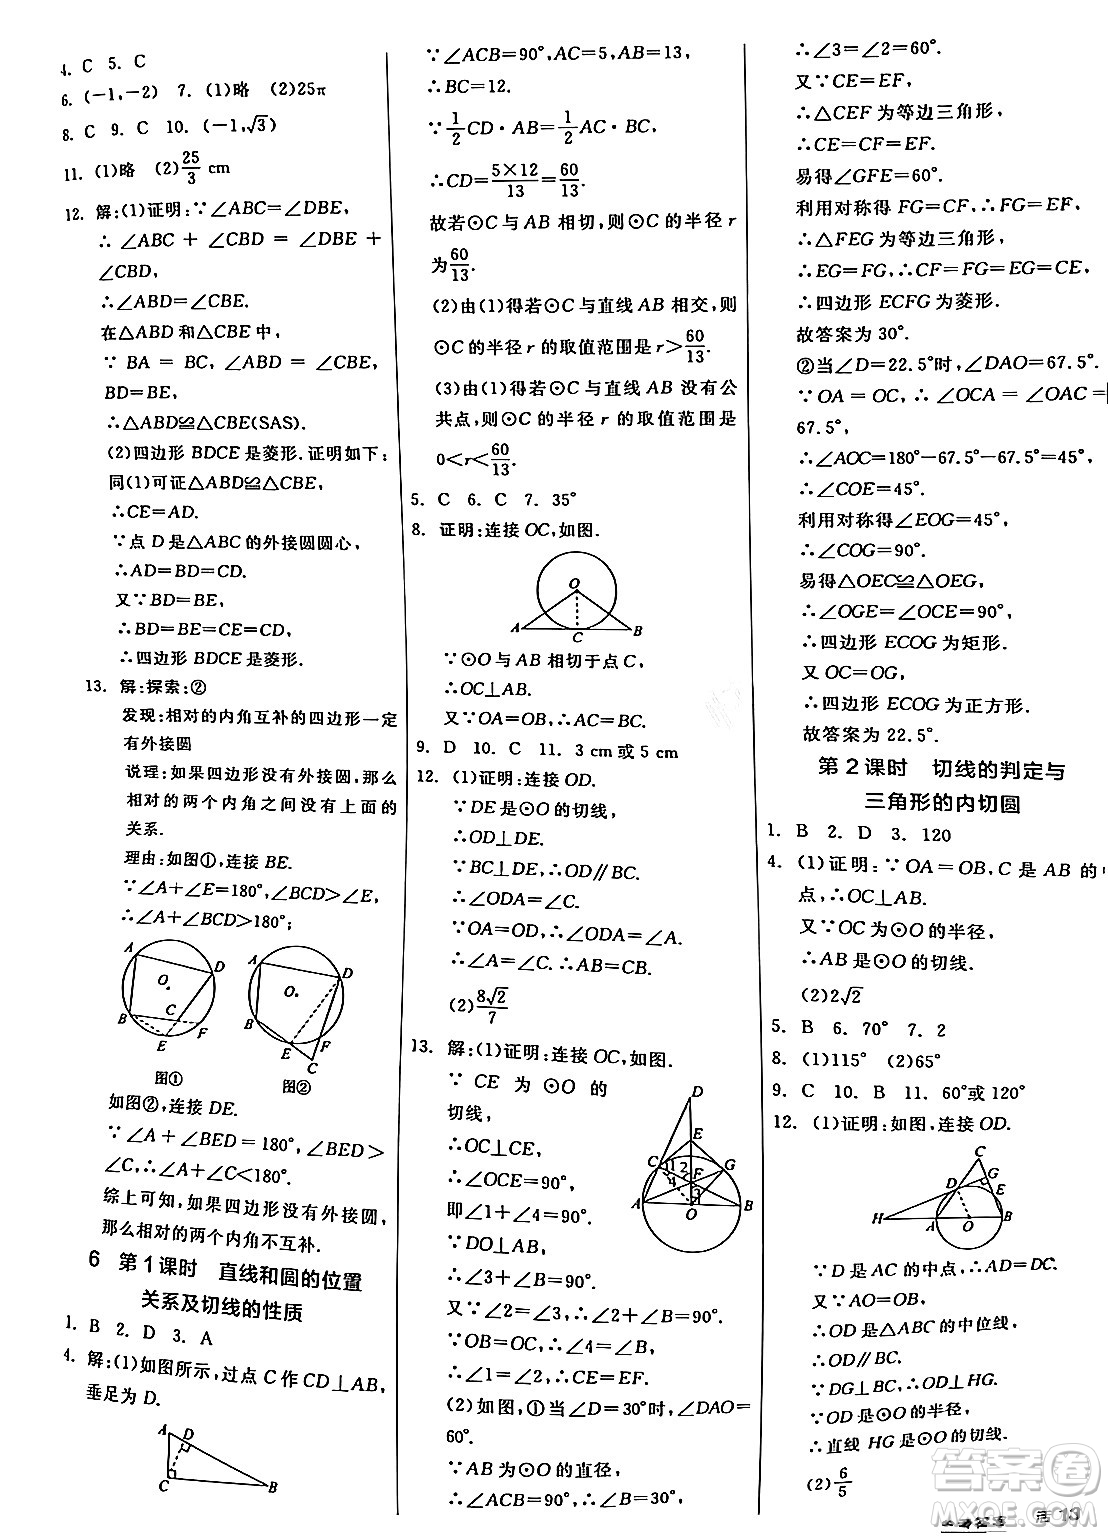 4. C 5. C
6. (-1,-2) 7. (1)略 (2)25π
8. C 9. C 10. (-1,√3)
11. (1)略 (2)25/3 cm
12. 解:(1)证明:∵∠ABC=∠DBE,
∴∠ABC + ∠CBD = ∠DBE +
∠CBD,
∴∠ABD=∠CBE.
在△ABD和△CBE中,
∵ BA = BC, ∠ABD = ∠CBE,
BD=BE,
∴△ABD≌△CBE(SAS).
(2)四边形 BDCE 是菱形.证明如下:
同(1)可证△ABD≌△CBE,
∴CE=AD.
∵点 D 是△ABC的外接圆圆心,
∴AD=BD=CD.
又∵BD=BE,
∴BD=BE=CE=CD,
∴四边形 BDCE 是菱形.
13. 解:探索:②
发现:相对的内角互补的四边形一定
有外接圆
说理:如果四边形没有外接圆,那么
相对的两个内角没有上面的
关系.
理由:如图①,连接 BE.
∵∠A+∠E=180°,∠BCD>∠E,
∴∠A+∠BCD>180°;
A D O C B F E
A D O B E F C
图① 图②
如图②,连接 DE.
∵∠A+∠BED=180°,∠BED>
∠C,∴∠A+∠C<180°.
综上可知,如果四边形没有外接圆,
那么相对的两个内角不互补.
6 第1课时 直线和圆的位置
关系及切线的性质
1. B 2. D 3. A
4. 解:(1)如图所示,过点 C 作 CD⊥AB,
垂足为 D.
A D C B
∵∠ACB=90°,AC=5,AB=13,
∴BC=12.
∵1/2 CD·AB=1/2 AC·BC,
∴CD=5×12/13=60/13.
故若⊙C与 AB 相切,则⊙C的半径 r
为60/13.
(2)由(1)得若⊙C与直线 AB 相交,则
⊙C的半径 r 的取值范围是 r>60/13.
(3)由(1)得若⊙C与直线 AB 没有公
共点,则⊙C的半径 r 的取值范围是
0<r<60/13.
5. C 6. C 7. 35°
8. 证明:连接 OC,如图.
O A C B
∵⊙O与 AB 相切于点 C,
∴OC⊥AB.
又∵OA=OB,∴AC=BC.
9. D 10. C 11. 3 cm 或 5 cm
12. (1)证明:连接 OD.
∵DE 是⊙O的切线,
∴OD⊥DE.
∵BC⊥DE,∴OD∥BC,
∴∠ODA=∠C.
∵OA=OD,∴∠ODA=∠A,
∴∠A=∠C.∴AB=CB.
(2)8√2/7
13. 解:(1)证明:连接 OC,如图.
∵ CE 为 ⊙O 的
切线,
∴OC⊥CE,
∴∠OCE=90°,
即∠1+∠4=90°,
∵DO⊥AB,
∴∠3+∠B=90°.
D E C 1 2 G 4 F 3 A O B
又∵∠2=∠3,∴∠2+∠B=90°.
∵OB=OC,∴∠4=∠B,
∴∠1=∠2,∴CE=EF.
(2)如图,①当∠D=30°时,∠DAO=
60°.
∵AB 为⊙O的直径,
∴∠ACB=90°,∴∠B=30°,
∴∠3=∠2=60°.
又∵CE=EF,
∴△CEF 为等边三角形,
∴CE=CF=EF.
易得∠GFE=60°.
利用对称得 FG=CF,∴FG=EF,
∴△FEG 为等边三角形,
∴EG=FG,∴CF=FG=EG=CE,
∴四边形 ECFG 为菱形.
故答案为 30°.
②当∠D=22.5°时,∠DAO=67.5°.
∵OA = OC, ∴∠OCA = ∠OAC =
67.5°,
∴∠AOC=180°-67.5°-67.5°=45°,
∴∠COE=45°.
利用对称得∠EOG=45°,
∴∠COG=90°.
易得△OEC≌△OEG,
∴∠OGE=∠OCE=90°,
∴四边形 ECOG 为矩形.
又 OC=OG,
∴四边形 ECOG 为正方形.
故答案为 22.5°.
第2课时 切线的判定与
三角形的内切圆
1. B 2. D 3. 120
4. (1)证明:∵OA=OB,C 是 AB 的
点,∴OC⊥AB.
又∵OC为⊙O的半径,
∴AB 是⊙O的切线.
(2)2√2
5. B 6. 70° 7. 2
8. (1)115° (2)65°
9. C 10. B 11. 60°或 120°
12. (1)证明:如图,连接 OD.
C G D E H A O B
∵D 是 AC 的中点,∴AD=DC.
又∵AO=OB,
∴OD 是△ABC 的中位线,
∴OD∥BC.
∵DG⊥BC,∴OD⊥HG.
∵OD 是⊙O的半径,
∴直线 HG 是⊙O的切线.
(2)6/5
答案圈
MXQE.COM
13